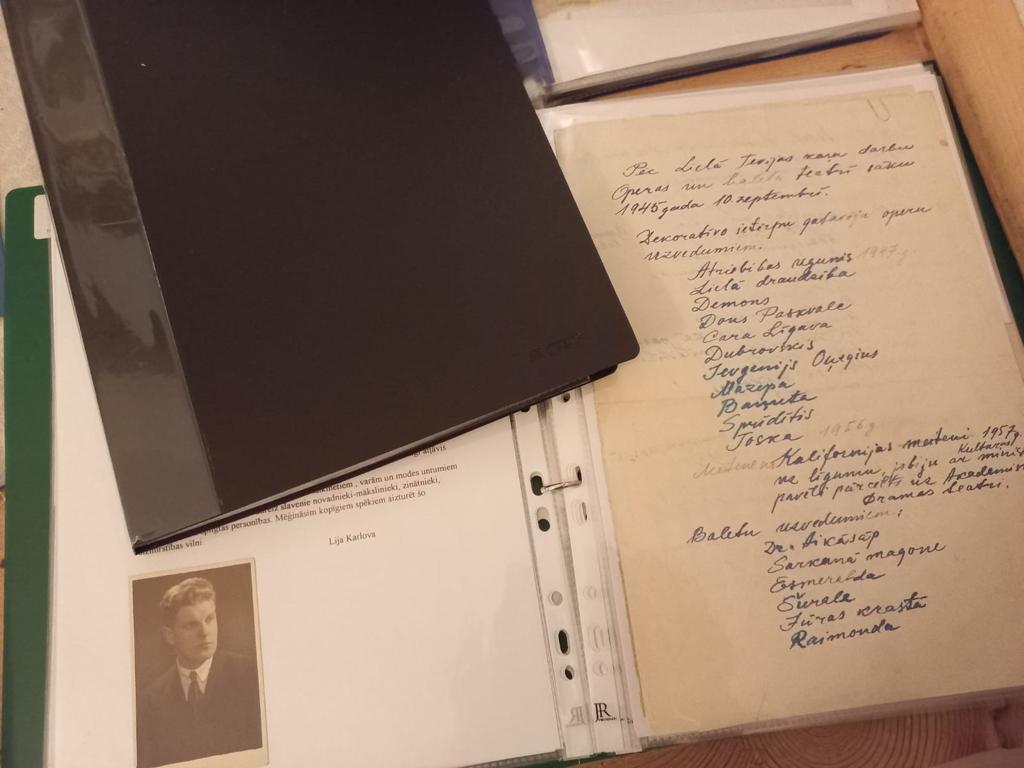 aizmirstības vilni
varām un modes untumiem
slavenie novadnieki-mākslinieki, zinātnieki,
personības. Mēģināsim kopīgiem spēkiem aizturēt šo
Lija Karlova
Pēc Lielā Tēvijas kara darbu
Operas un baleta teātrī sāku
1945 gada 10. septembrī.
Dekoratīvo ietērpu gatavoju operu
uzvedumiem.
Atriebības ugunis 1947 g.
Lielā draudzība
Demons
Dons Paskvale
Cara Līgava
Dubrovskis
Jevgenijs Oņegins
Mazepa
Baņuta
Sprīdītis
Toska 1956 g
Kalifornijas meiteni 1957 g.
uz līgumu, jo biju ar Kultūras minis
pavēli pārcelts uz Akadēmisko
Drāmas teātri.
Baletu uzvedumiem:
Dr. Aikāsāp
Sarkanā magone
Esmeralda
Šurale
Jūras krastā
Raimonda
JR